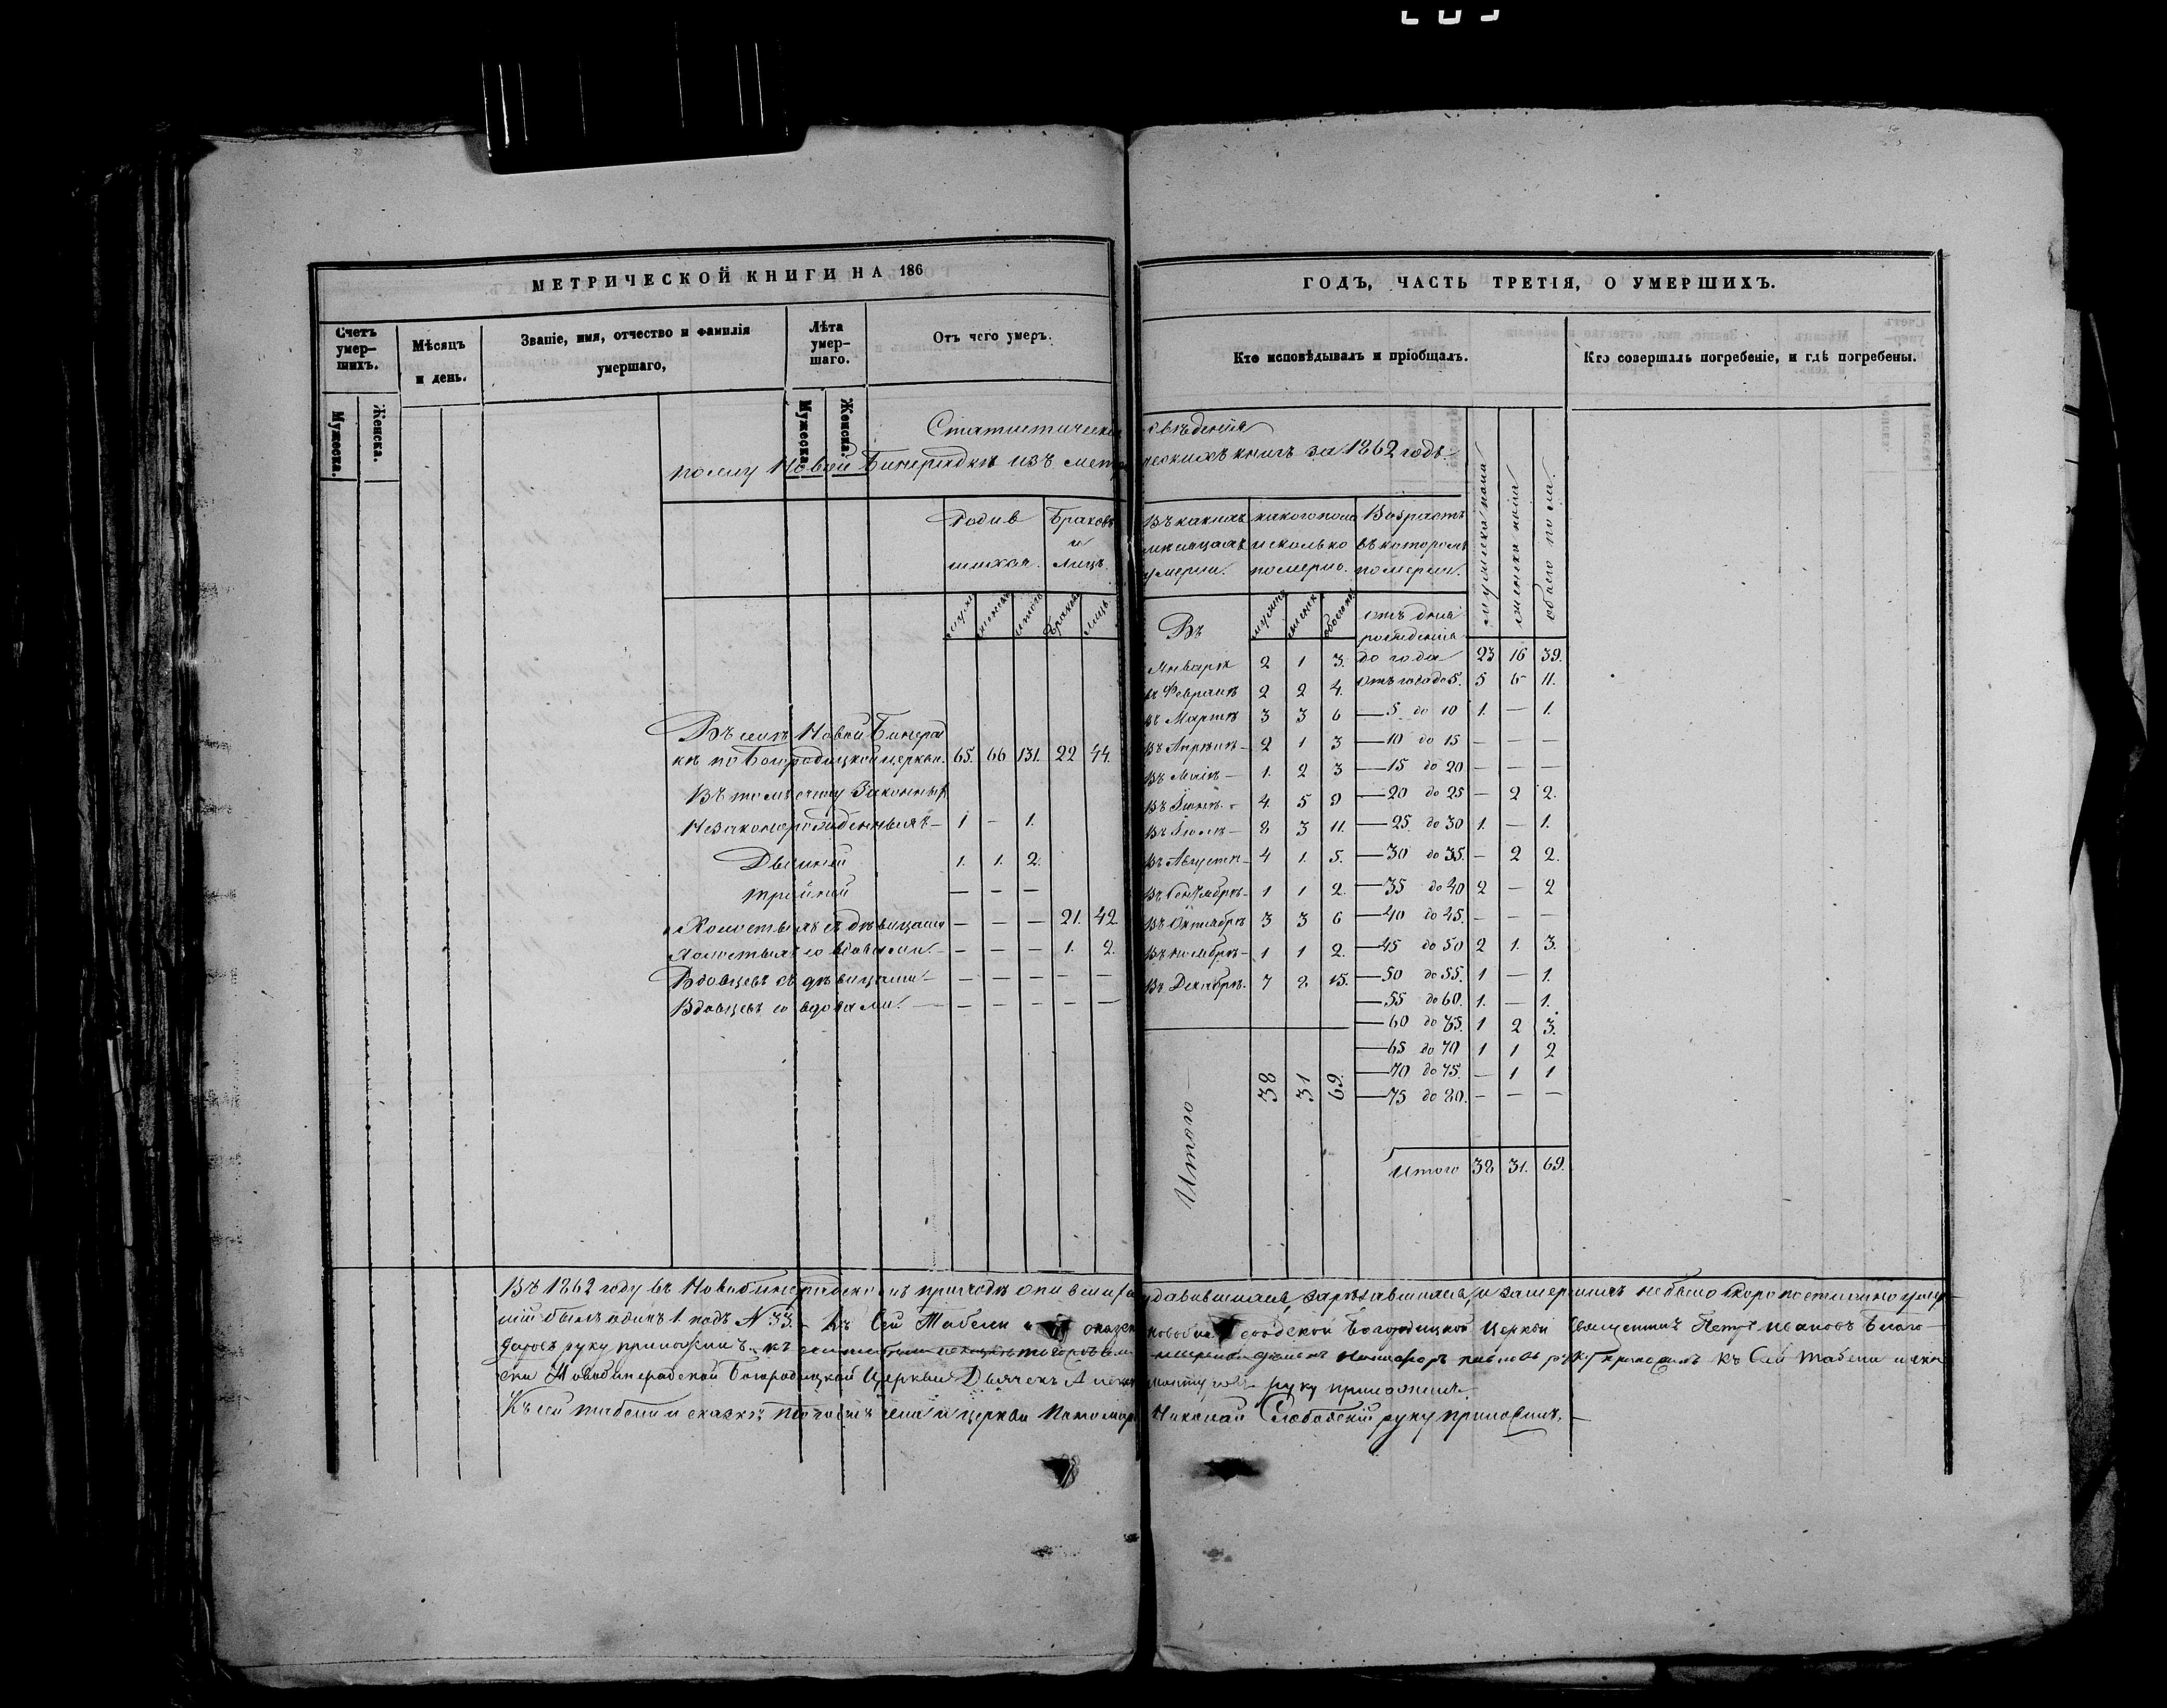 МЕТРИЧЕСКОЙ КНИГИ НА 186
ГОДЪ, ЧАСТЬ ТРЕТІЯ, О УМЕРШИХЪ.
Счетъ умер-
шихъ.
Мѣсяцъ
и день.
Званіе, имя, отчество и фамилія
умершаго,
Лѣта
умер-
шаго.
Отъ чего умеръ.
Кто исповѣдывалъ и пріобщалъ.
Кто совершалъ погребеніе, и гдѣ погребены.
Мужеска.
Женска.
Мужеска.
Женска.
Статистическія свѣденія
по селу Новой Бинерадкѣ изъ метрическихъ книгъ за 1862 годъ.
Родив
шихся.
Браковъ
и
лицъ.
Въ какихъ
мѣсяцахъ
умерли.
какого пола
и сколько
померло.
Возрастъ
въ которомъ
померли.
мужеска пола
женска пола
обоего пола.
мужск
женск
итого
Браковъ
Лицъ
Въ
мужска
женск
обоего
отъ дня
рожденія
Въ селѣ Новой Бинерад
кѣ по Богородицкой церкви. 65. 66 131. 22 44.
Въ томъ счету законныхъ
Незаконорожденныхъ – 1 – 1.
Двойней 1. 1. 2.
тройней — — —
Холостыхъ съ дѣвицами — — — 21. 42
Холостыхъ со вдовами. — — — 1. 2.
Вдовцевъ съ дѣвицами — — — — —
Вдовцевъ со вдовами. — — — — —
Январѣ 2 1 3. до года 23 16 39.
въ Февралѣ 2 2 4. отъ года до 5. 5 6 11.
въ Мартѣ 3 3 6 — 5 до 10 1. — 1.
Въ Апрѣлѣ – 2 1 3 — 10 до 15 — — —
Въ Маіѣ — 1. 2 3 — 15 до 20 — — —
Въ Іюнѣ. – 4. 5 9 — 20 до 25 — 2 2.
Въ Іюлѣ – 8 3 11. — 25 до 30 1. — 1.
Въ Августѣ – 4 1. 5. — 30 до 35. — 2 2.
Въ Сентябрѣ – 1 1 2. — 35 до 40 2 — 2
Въ Октябрѣ 3 3 6 — 40 до 45. — — —
Въ ноябрѣ – 1 1 2. — 45 до 50 2 1. 3.
Въ Декабрѣ. 7 8 15. — 50 до 55. 1 — 1.
— 55 до 60. 1. — 1.
— 60 до 65. 1 2 3.
— 65 до 70 1 1 2
— 70 до 75. — 1 1
— 75 до 80. — — —
Итого 38 31 69.
Итого 38 31. 69.
Въ 1862 году въ Новобинерадскомъ приходѣ опившихся удавившихся, зарѣзавшихся, и замерзшихъ не было скоропостижно умер
шій былъ одинъ 1. подъ № 33. Къ сей Табели и Новобинерадской Богородицкой Церкви Священникъ Петръ Ивановъ Благо
даровъ руку приложилъ. къ руку приложилъ Къ Сей табели и ска
ски Новобинерадской Богородицкой Церкви Дьячекъ руку приложилъ.
Къ сей табели и сказкѣ того жъ села и церкви Пономарь Николай Слободскій руку приложилъ.